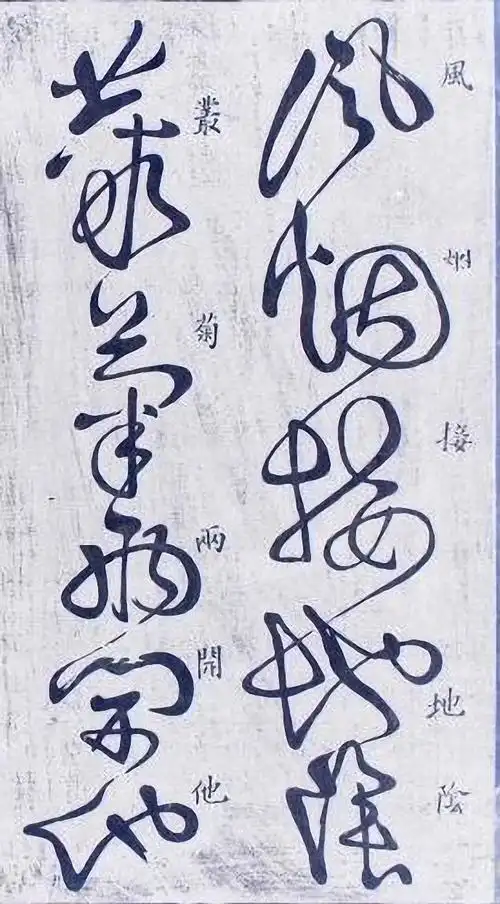 風烟接地陰
風烟接地陰
叢菊兩開他
叢菊兩開他